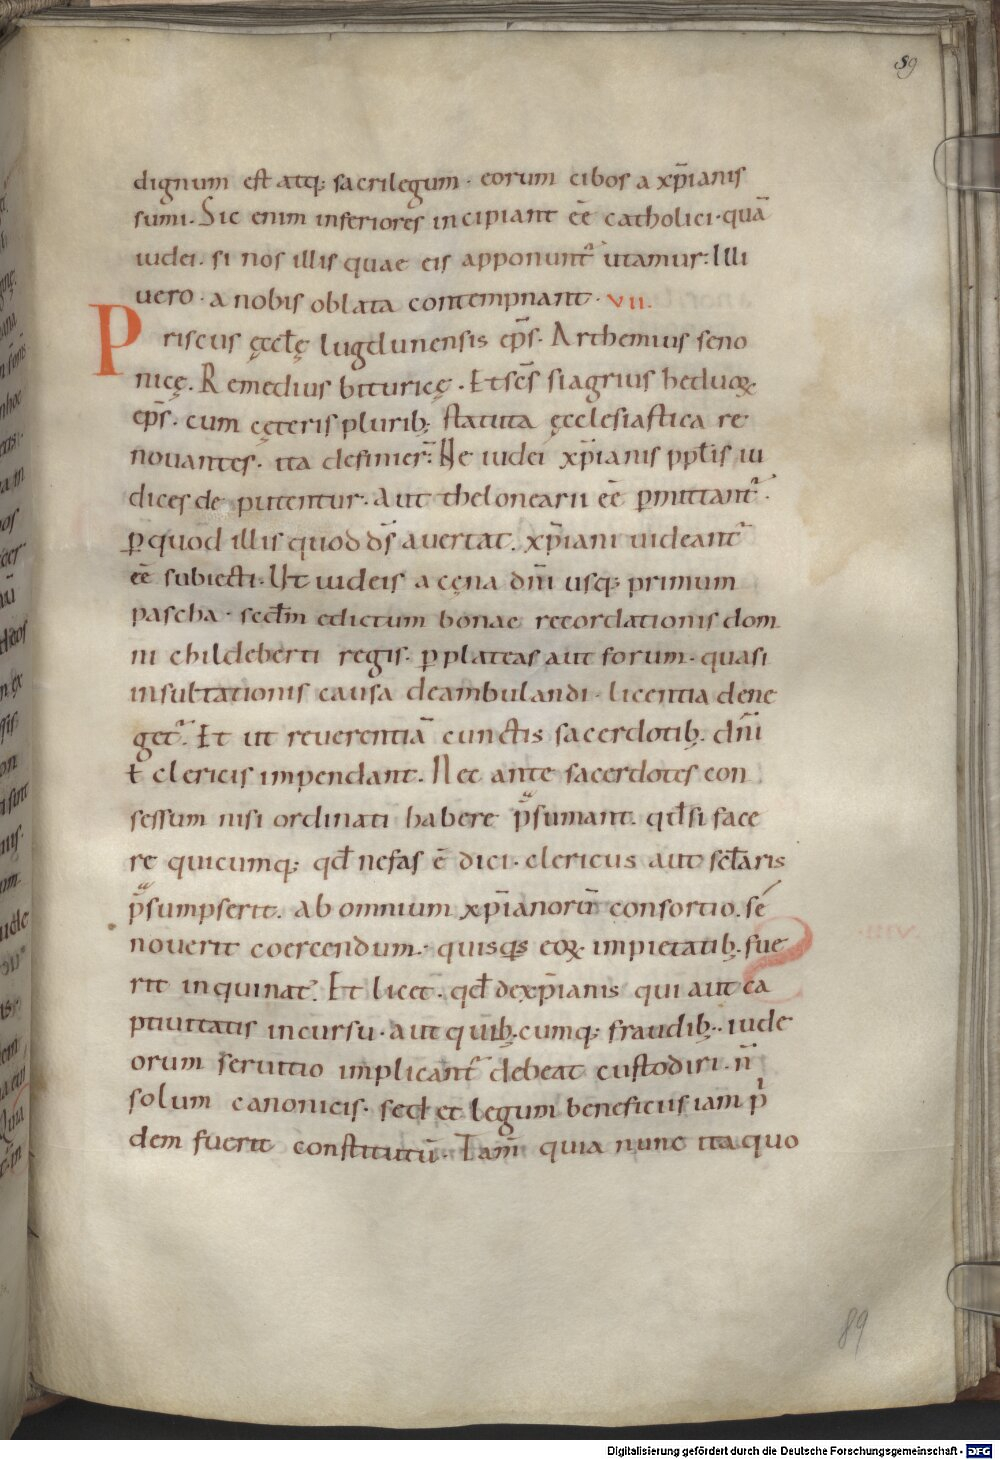 89
dignum est atq; sacrilegum · eorum cibos a xp̄ianis
sumi. Sic enim inferiores incipiant eē catholici · quā
iudei. si nos illis quae eis apponunt᷒ utamur: Illi
uero · a nobis oblata contempnant · VII.
Priscus ęccłę lugdunensis ep̄s. Arthemius seno
nicę. Remedius bituricę. Et sc̄s siagrius heduoꝝ
ep̄s. cum cęteris plurib; statuta ęcclesiastica re
nouantes. ita definier̄: Ne iudei xp̄ianis ppłis iu
dices deputentur. Aut thelonearii eē ꝑmittant᷒.
ꝑ quod illis quod ds̄ auertat. xp̄iani uideant᷒
eē subiecti. Ut iudeis a cęna dn̄i usq; primum
pascha · secdm̄ edictum bonae recordationis dom
ni childeberti regis. ꝑ plateas aut forum. quasi
insultationis causa deambulandi. licentia dene
get᷒. Et ut reuerentiā cunctis sacerdotib; dn̄i
ł clericis impendant. Nec ante sacerdotes con
sessum nisi ordinati habere p̄sumant. qđ si face
re quicumq; qđ nefas ē dici. clericus aut scłaris
p̄sumpserit. ab omnium xp̄ianorū consortio. se
nouerit coercendum. quisq̄s eoꝝ impietatib; fue
rit inquinat᷒. Et licet. qđ de xp̄ianis qui aut ca
ptiuitatis incursu. aut quib;cumq; fraudib; iude
orum seruitio implicant᷒ debeat custodiri. n̄
solum canonicis. sed et legum beneficiis iam pri
dem fuerit constitutū. Tam̄ quia nunc ita quo
89
Digitalisierung gefördert durch die Deutsche Forschungsgemeinschaft - DFG